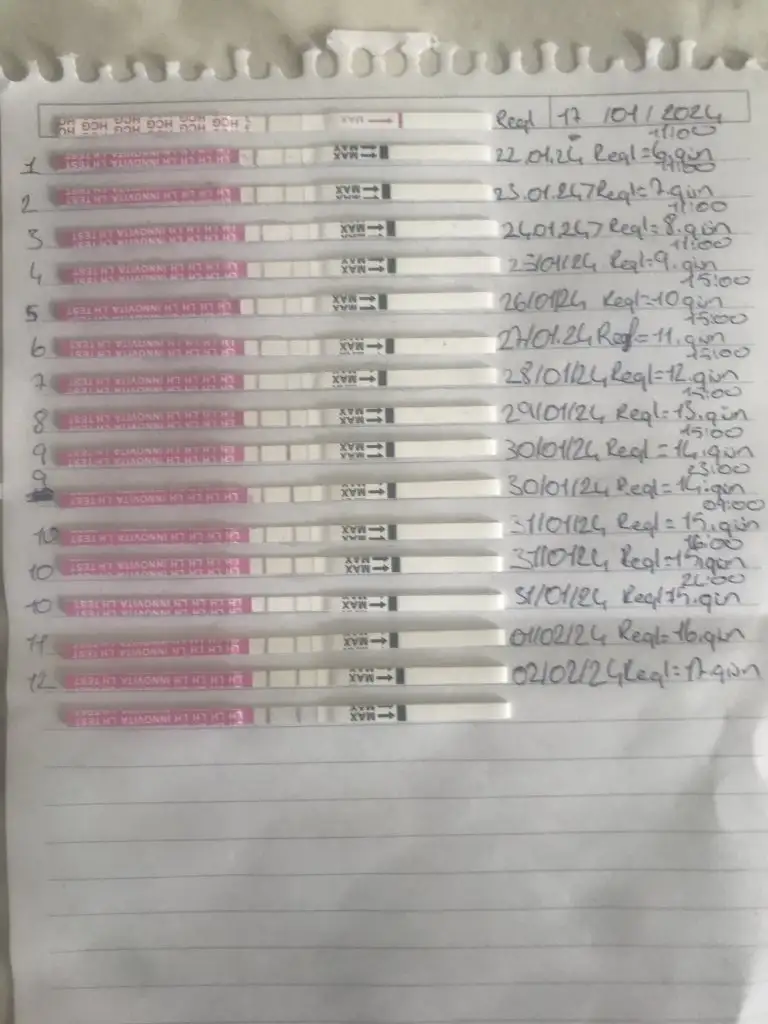 HCG HCG HCG HCG HCG MAX Regl 17 /01/2024
11:00
1 LH TEST LH INNOVITA LH LH LH LH MAX 22.01.24 Regl=6.gün
11:00
2 LH TEST LH INNOVITA LH LH LH LH MAX 23.01.24 Regl=7.gün
11:00
3 LH TEST LH INNOVITA LH LH LH LH MAX 24.01.24 Regl=8.gün
11:00
4 LH TEST LH INNOVITA LH LH LH LH MAX 25/01/24 Regl=9.gün
15:00
5 LH TEST LH INNOVITA LH LH LH LH MAX 26/01/24 Regl=10gün
15:00
6 LH TEST LH INNOVITA LH LH LH LH MAX 27/01.24 Regl=11.gün
15:00
7 LH TEST LH INNOVITA LH LH LH LH MAX 28/01/24 Regl=12.gün
15:00
8 LH TEST LH INNOVITA LH LH LH LH MAX 29/01/24 Regl=13.gün
15:00
9 LH TEST LH INNOVITA LH LH LH LH MAX 30/01/24 Regl=14.gün
23:00
9 LH TEST LH INNOVITA LH LH LH LH MAX 30/01/24 Regl=14.gün
09:00
10 LH TEST LH INNOVITA LH LH LH LH MAX 31/01/24 Regl=15.gün
16:00
10 LH TEST LH INNOVITA LH LH LH LH MAX 31/01/24 Regl=15.gün
22:00
10 LH TEST LH INNOVITA LH LH LH LH MAX 31/01/24 Regl 15.gün
11 LH TEST LH INNOVITA LH LH LH LH MAX 01/02/24 Regl=16.gün
12 LH TEST LH INNOVITA LH LH LH LH MAX 02/02/24 Regl=17.gün
LH TEST LH INNOVITA LH LH LH LH MAX